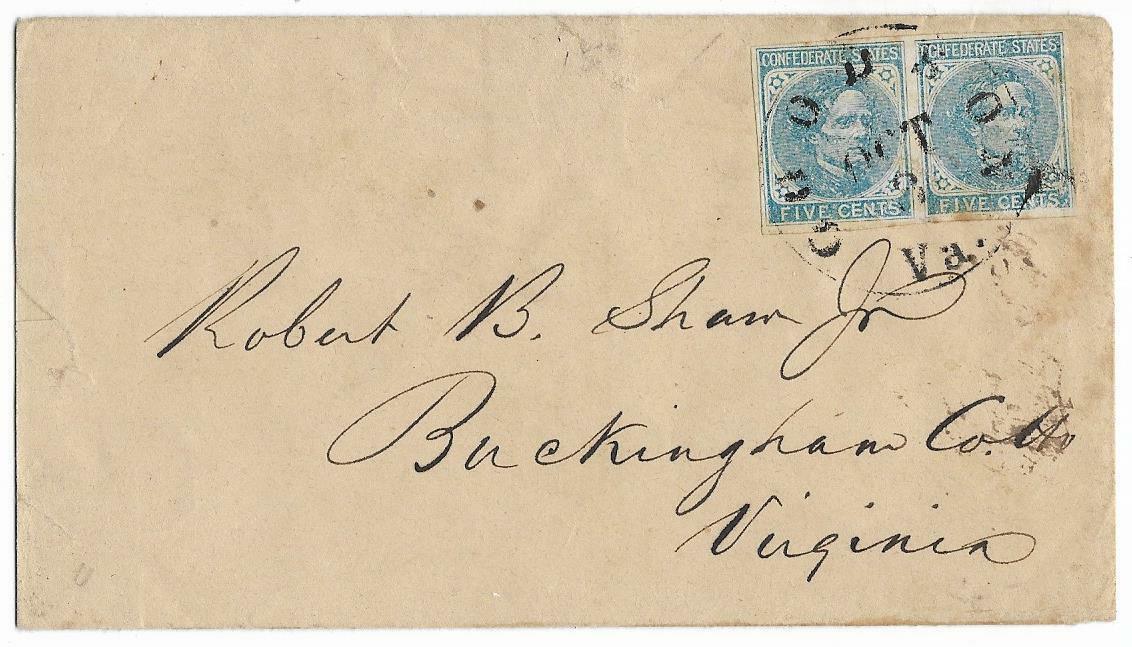 CONFEDERATE STATES CONFEDERATE STATES
OCT
FIVE CENTS FIVE CENTS
Va.
Robert B. Shaw Jr
Buckingham Co. Ho
Virginia